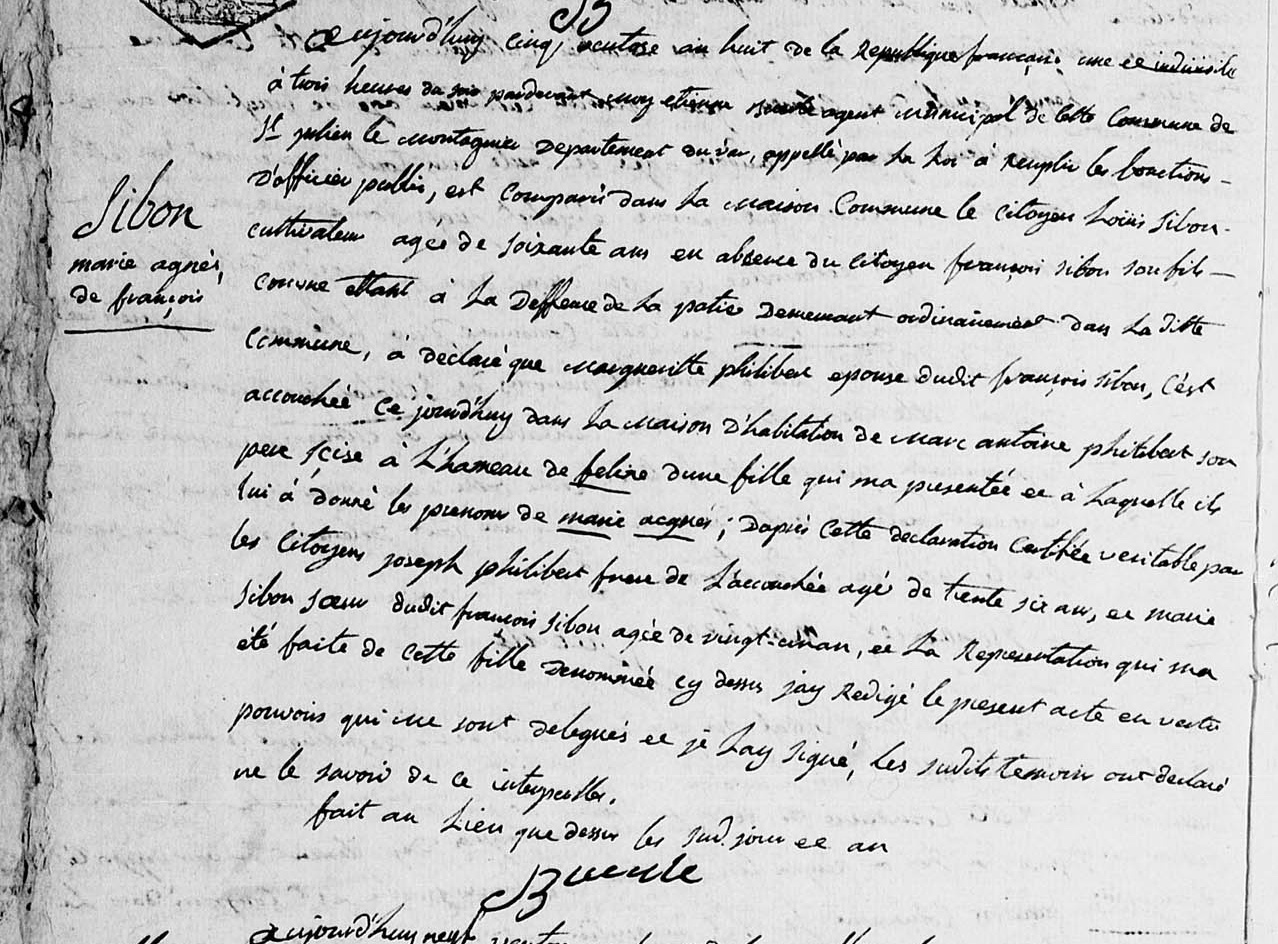 Aujourd'huy cinq ventose an huit de la Republique françoise une et indivisible
à trois heures du soir pardevant moy etienne agent municipal de cette Commune de
St julien le Montagnier Departement du var, appellé par La Loi à remplir les fonctions -
D'officier public, est Comparû dans La Maison Commune le Citoyen Loüis Sibon -
cultivateur agée de soixante ans en absence du Citoyen françois sibon son fils -
comme ettant à La Deffence de La patrie Demeurant ordinairement dans La ditte
Commune, à déclaré que Margueritte philibert epouse dudit françois sibon, c'est
accouchée ce jourd'huy dans La Maison D'habitation de Marc antoine philibert son
pere scise à L'hameau de feline dune fille qui ma presentée et à Laquelle ils
lui à donné les prenoms de marie acgnés ; Daprés Cette declaration certifiée veritable par
les Citoyens joseph philibert frere de L'accouchée agé de trente six ans, et marie
Sibon sœur dudit françois Sibon agée de vingt-cinq an, et La Representation qui ma
été faite de Cette fille Denommée cy dessus jay Redigé le present acte en vertu
pouvoirs qui me sont delegués et je Lay Signé, Les sudits temoins ont declaré
ne le savoir de ce interpellés.
fait au Lieu que dessus les sud. jour et an
Sibon
marie agnés,
de françois
Aujourd'huy neuf ventose